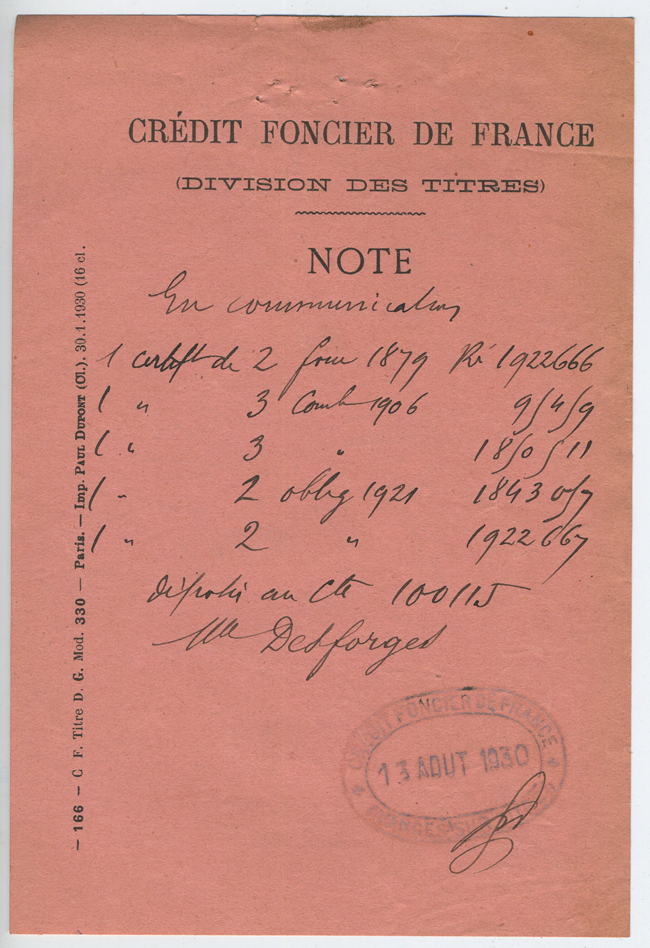 CRÉDIT FONCIER DE FRANCE
(DIVISION DES TITRES)
NOTE
En communication
1 certift de 2 fonc 1879 Ré 1922666
1 " 3 Com 1906 915459
1 " 3 " 1850511
1 " 2 oblig 1921 1843057
1 " 2 " 1922667
déposés au Cte 100115
Mlle Desforges
CRÉDIT FONCIER DE FRANCE
13 AOUT 1930
— 166 — C F. Titre D. G. Mod. 330 — Paris. — Imp. PAUL DUPONT (Cl.). 30.1.1930 (16 cl.